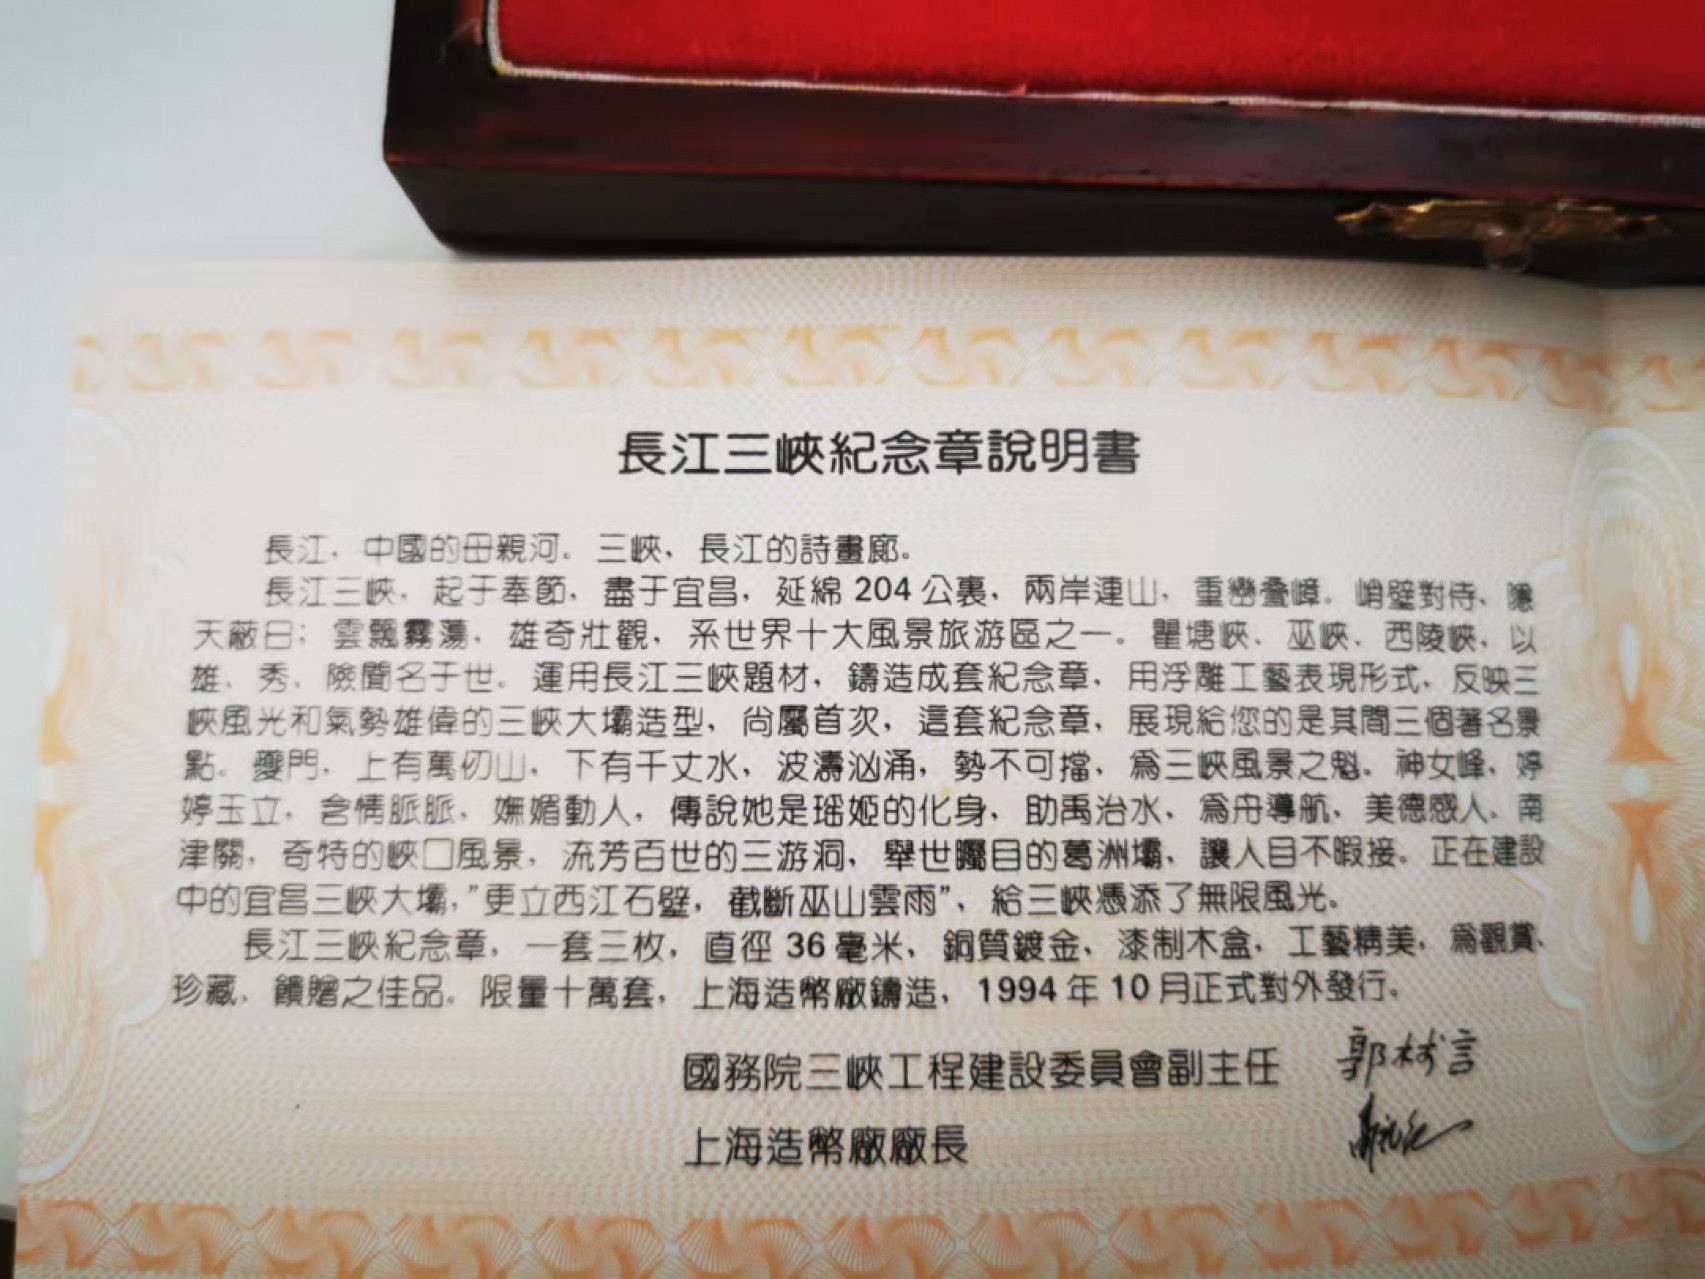 長江三峽紀念章說明書
長江、中國的母親河。三峽、長江的詩畫廊。
長江三峽，起于奉節，盡于宜昌，延綿 204 公裏，兩岸連山，重巒叠嶂。峭壁對侍、隱
天蔽日；雲飄霧蕩，雄奇壯觀，系世界十大風景旅游區之一。瞿塘峽、巫峽、西陵峽，以
雄、秀、險聞名于世。運用長江三峽題材，鑄造成套紀念章，用浮雕工藝表現形式，反映三
峽風光和氣勢雄偉的三峽大壩造型，尚屬首次，這套紀念章，展現給您的是其間三個著名景
點。夔門，上有萬仞山，下有千丈水，波濤汹涌，勢不可擋，爲三峽風景之魁。神女峰，婷
婷玉立，含情脈脈，嫵媚動人，傳說她是瑶姬的化身，助禹治水，爲舟導航，美德感人。南
津關，奇特的峽口風景，流芳百世的三游洞，舉世矚目的葛洲壩，讓人目不暇接。正在建設
中的宜昌三峽大壩，"更立西江石壁，截斷巫山雲雨"、給三峽憑添了無限風光。
長江三峽紀念章，一套三枚，直徑 36 毫米，銅質鍍金，漆制木盒，工藝精美，爲觀賞、
珍藏、饋贈之佳品。限量十萬套，上海造幣廠鑄造，1994 年 10 月正式對外發行。
國務院三峽工程建設委員會副主任 郭树言
上海造幣廠廠長